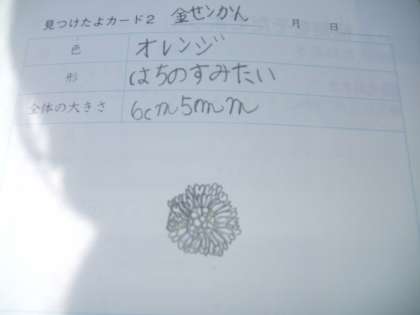 見つけたよカード2 金せンかん 月 日
色 オレンジ
形 はちのすみたい
全体の大きさ 6cm5mm